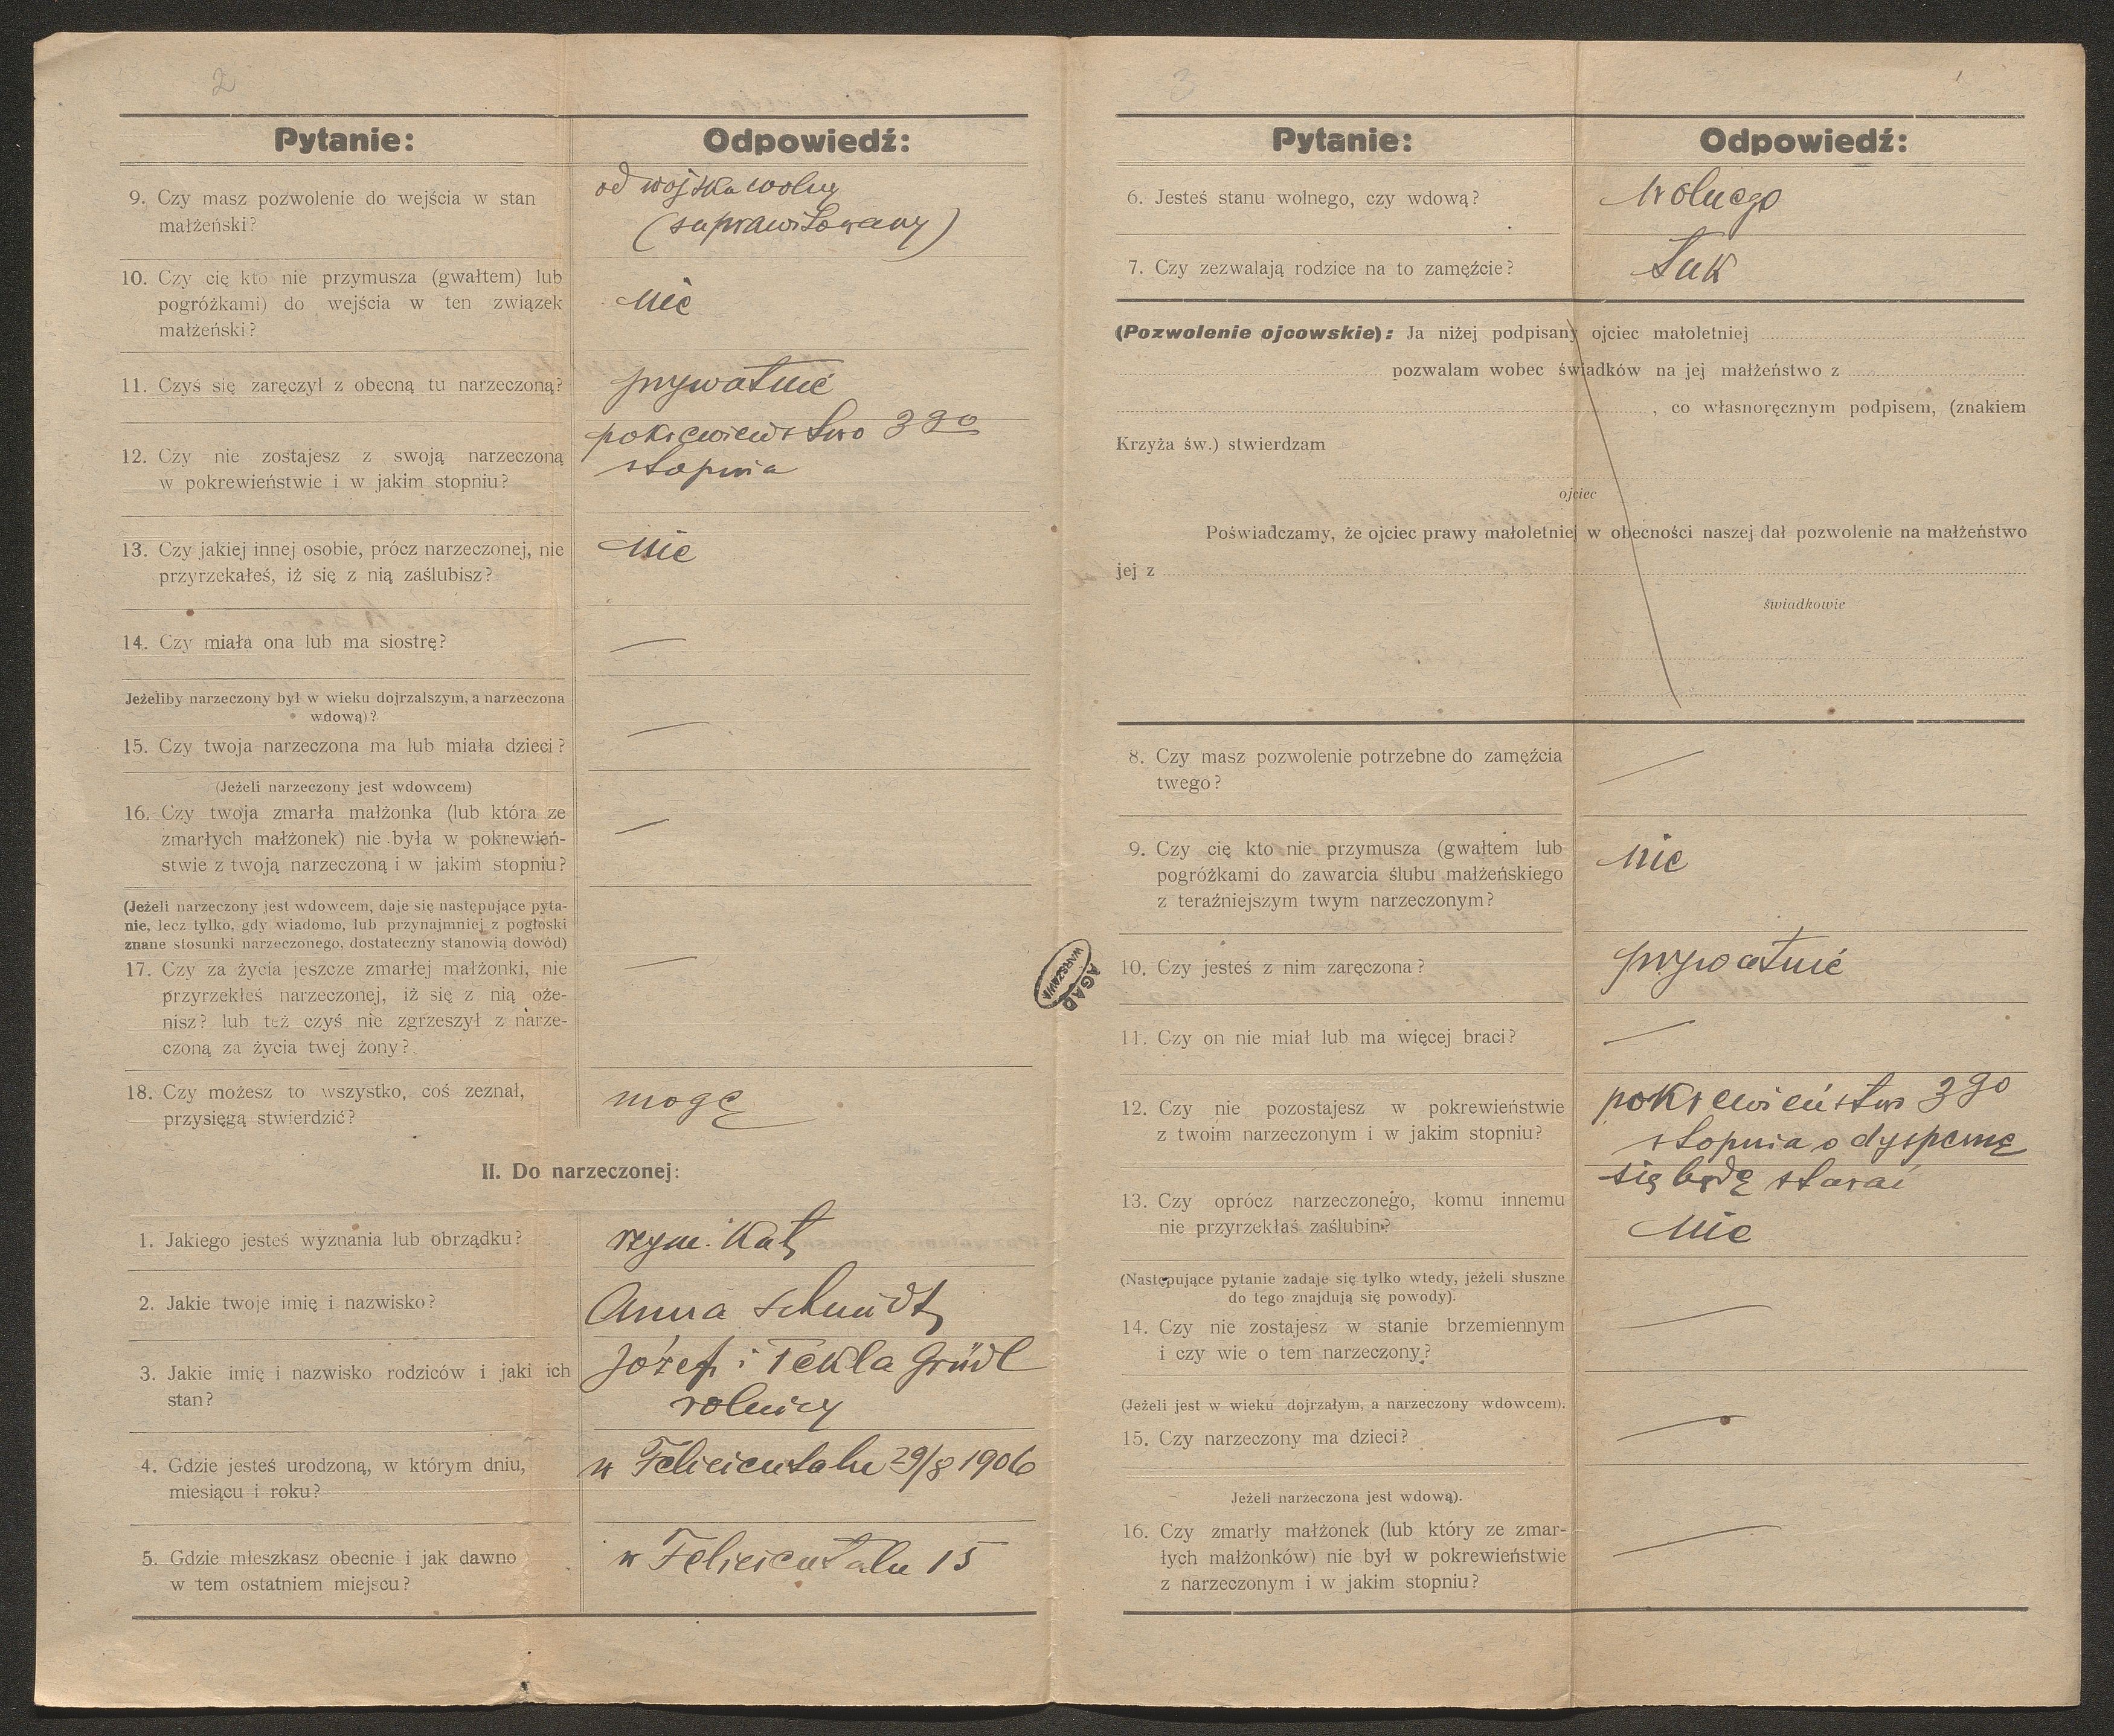 2
Pytanie:
Odpowiedź:
9. Czy masz pozwolenie do wejścia w stan
małżeński?
od wojska wolny
(suprawitowany)
10. Czy cię kto nie przymusza (gwałtem) lub
pogróżkami) do wejścia w ten związek
małżeński?
nie
11. Czyś się zaręczył z obecną tu narzeczoną?
prywatnie
12. Czy nie zostajesz z swoją narzeczoną
w pokrewieństwie i w jakim stopniu?
pokrewieństwo 3go
stopnia
13. Czy jakiej innej osobie, prócz narzeczonej, nie
przyrzekałeś, iż się z nią zaślubisz?
nie
14. Czy miała ona lub ma siostrę?
—
Jeżeliby narzeczony był w wieku dojrzalszym, a narzeczona
wdową)?
15. Czy twoja narzeczona ma lub miała dzieci?
—
(Jeżeli narzeczony jest wdowcem)
16. Czy twoja zmarła małżonka (lub która ze
zmarłych małżonek) nie była w pokrewień-
stwie z twoją narzeczoną i w jakim stopniu?
—
(Jeżeli narzeczony jest wdowcem, daje się następujące pyta-
nie, lecz tylko, gdy wiadomo, lub przynajmniej z pogłoski
znane stosunki narzeczonego, dostateczny stanowią dowód)
17. Czy za życia jeszcze zmarłej małżonki, nie
przyrzekłeś narzeczonej, iż się z nią oże-
nisz? lub też czyś nie zgrzeszył z narze-
czoną za życia twej żony?
—
18. Czy możesz to wszystko, coś zeznał,
przysięgą stwierdzić?
mogę
II. Do narzeczonej:
1. Jakiego jesteś wyznania lub obrządku?
rzym. kat,
2. Jakie twoje imię i nazwisko?
Anna Schmidt,
3. Jakie imię i nazwisko rodziców i jaki ich
stan?
Józef i Tekla Gründl
rolnicy
4. Gdzie jesteś urodzoną, w którym dniu,
miesiącu i roku?
w Felicientalu 29/8 1906
5. Gdzie mieszkasz obecnie i jak dawno
w tem ostatniem miejscu?
w Felicientalu 15
AGAD
WARSZAWA
3
Pytanie:
Odpowiedź:
6. Jesteś stanu wolnego, czy wdową?
wolnego
7. Czy zezwalają rodzice na to zamęźcie?
Tak
(Pozwolenie ojcowskie): Ja niżej podpisany ojciec małoletniej
pozwalam wobec świadków na jej małżeństwo z
, co własnoręcznym podpisem, (znakiem
Krzyża św.) stwierdzam
ojciec
Poświadczamy, że ojciec prawy małoletniej w obecności naszej dał pozwolenie na małżeństwo
jej z
świadkowie
8. Czy masz pozwolenie potrzebne do zamęźcia
twego?
—
9. Czy cię kto nie przymusza (gwałtem lub
pogróżkami do zawarcia ślubu małżeńskiego
z teraźniejszym twym narzeczonym?
nie
10. Czy jesteś z nim zaręczona?
prywatnie
11. Czy on nie miał lub ma więcej braci?
—
12. Czy nie pozostajesz w pokrewieństwie
z twoim narzeczonym i w jakim stopniu?
pokrewieństwo 3go
stopnia o dyspensę
się będę starać
13. Czy oprócz narzeczonego, komu innemu
nie przyrzekłaś zaślubin?
nie
(Następujące pytanie zadaje się tylko wtedy, jeżeli słuszne
do tego znajdują się powody).
14. Czy nie zostajesz w stanie brzemiennym
i czy wie o tem narzeczony?
—
(Jeżeli jest w wieku dojrzałym, a narzeczony wdowcem).
15. Czy narzeczony ma dzieci?
—
Jeżeli narzeczona jest wdową).
16. Czy zmarły małżonek (lub który ze zmar-
łych małżonków) nie był w pokrewieństwie
z narzeczonym i w jakim stopniu?
—